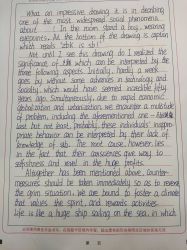 What an impressive drawing it is in describing
one of the most widespread social phenomena
about . In the room stand a boy, wearing
earphones. At the bottom of the drawing is caption
which reads "
Not until I see this drawing do I realize the
significance of which can be interpreted by the
three following aspects. Initially, hardly a week
goes by without some advances in technology and
society, which would have seemed incredible fifty
years ago. Simultaneously, due to rapid economic
globalization and urbanization, we encounter a multitude
of problem, including the aforementioned one
last but not least, probably, these individuals' inappro-
priate behavior can be interpreted by their lack of
knowledge of sib. The root cause, however, lies
in the fact that their consciences give way to
selfishness and reveal in the huge profits.
Altogether has been mentioned above, counter-
measures should be taken immediately so as to reverse
the grim situation. We are bound to foster a climate
that values the spirit, and rewards activities.
Life is like a huge ship sailing on the sea, in which